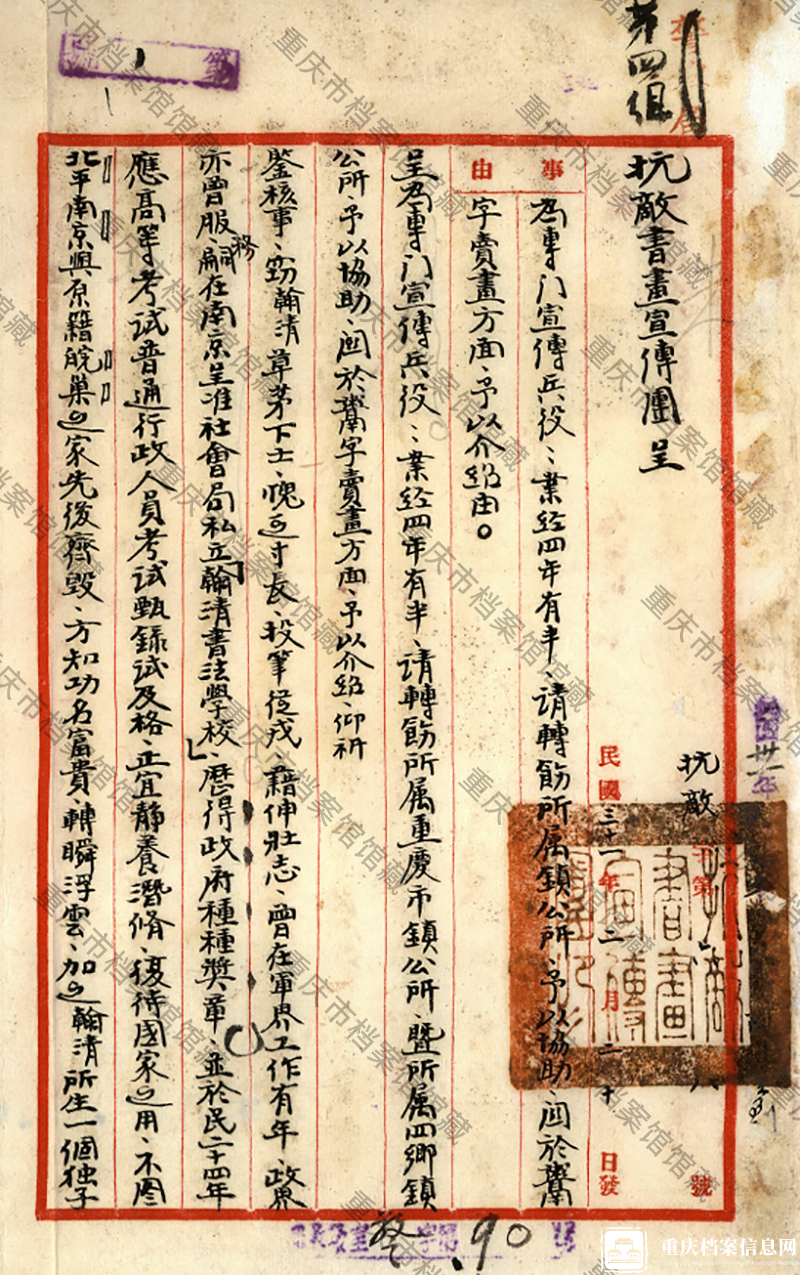 第四組
抗敵書畫宣傳團呈
抗敵 字第 號
民國三十一年二月二十日發
事由
為專門宣傳兵役、業經四年有半、請轉飭所属鎮公所、予以協助、関於鬻
字賣畫方面、予以介紹由。
呈為專門宣傳兵役、業經四年有半、請轉飭所属重慶市鎮公所、暨所属四鄉鎮
公所、予以協助、関於鬻字賣畫方面、予以介紹、仰祈
鉴核事、窃翰清草茅下士、愧乏寸長、投筆從戎、藉伸壯志、曾在軍界工作有年、政界
亦曾服務、嗣在南京呈准社會局私立「翰清書法學校」、歷得政府種種奬章、並於民二十四年
應高等考試普通行政人員考試甄錄試及格、正宜静養潛修、復待國家之用、不圖
北平南京與原籍皖巢之家先後齊毀、方知功名富貴、轉瞬浮雲、加之翰清所生一個独子
90
重庆档案信息网
重庆市档案馆馆藏